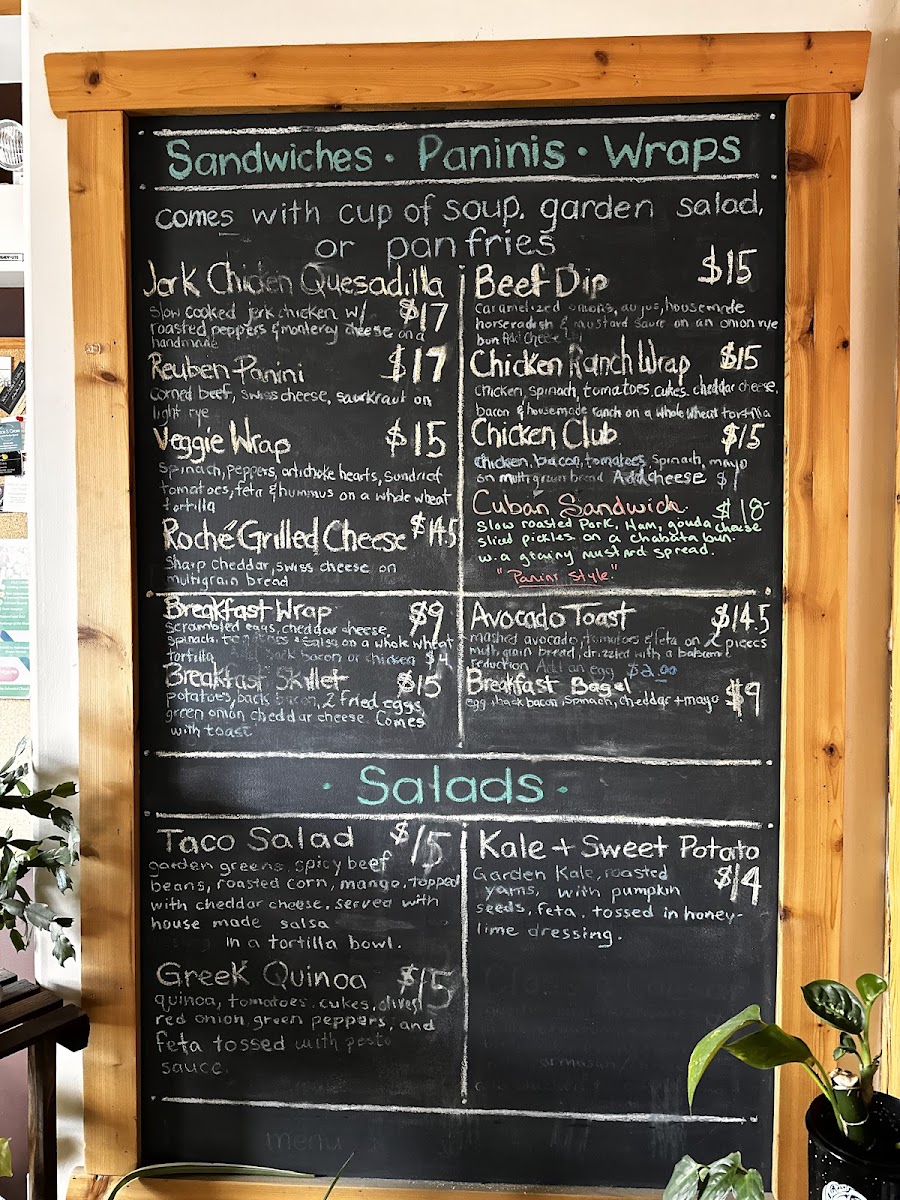 Sandwiches · Paninis · Wraps
comes with cup of soup, garden salad,
or pan fries
Jerk Chicken Quesadilla
$17
slow cooked jerk chicken w/
roasted peppers & monterey cheese on a
handmade
Reuben Panini $17
corned beef, swiss cheese, saurkraut on
light rye
Veggie Wrap $15
Spinach, peppers, artichoke hearts, sundried
tomatoes, feta & hummus on a whole wheat
tortilla
Roché Grilled Cheese $14.5
Sharp cheddar, swiss cheese on
multigrain bread
Beef Dip $15
Caramelized onions, au jus, housemade
horseradish & mustard sauce on an onion rye
bun Add Cheese
Chicken Ranch Wrap $15
Chicken, spinach, tomatoes, cukes, cheddar cheese,
bacon & housemade ranch on a whole wheat tortilla
Chicken Club $15
chicken, bacon, tomatoes, spinach, mayo
on multigrain bread Add cheese $1
Cuban Sandwich $18-
Slow roasted Pork, Ham, gouda cheese
sliced pickles on a chabata bun.
w. a grainy mustard spread.
"Panini Style"
Breakfast Wrap $9
Scrambled eggs, cheddar cheese,
Spinach, tomatoes & salsa on a whole wheat
tortilla Add back bacon or chicken $4
Breakfast Skillet $15
potatoes, back bacon, 2 fried eggs,
green onion cheddar cheese. Comes
with toast
Avocado Toast $14.5
mashed avocado, tomatoes & feta on 2 pieces
multigrain bread, drizzled with a balsamic
reduction Add an egg $2.00
Breakfast Bagel $9
egg, back bacon, spinach, cheddar + mayo
· Salads ·
Taco Salad $15
garden greens, spicy beef
beans, roasted corn, mango, topped
with cheddar cheese, served with
house made salsa
in a tortilla bowl.
Greek Quinoa $15
quinoa, tomatoes, cukes, olives,
red onion, green peppers, and
feta tossed with pesto
sauce.
Kale + Sweet Potato
$14
Garden Kale, roasted
yams, with pumpkin
seeds, feta, tossed in honey-
lime dressing.
menu